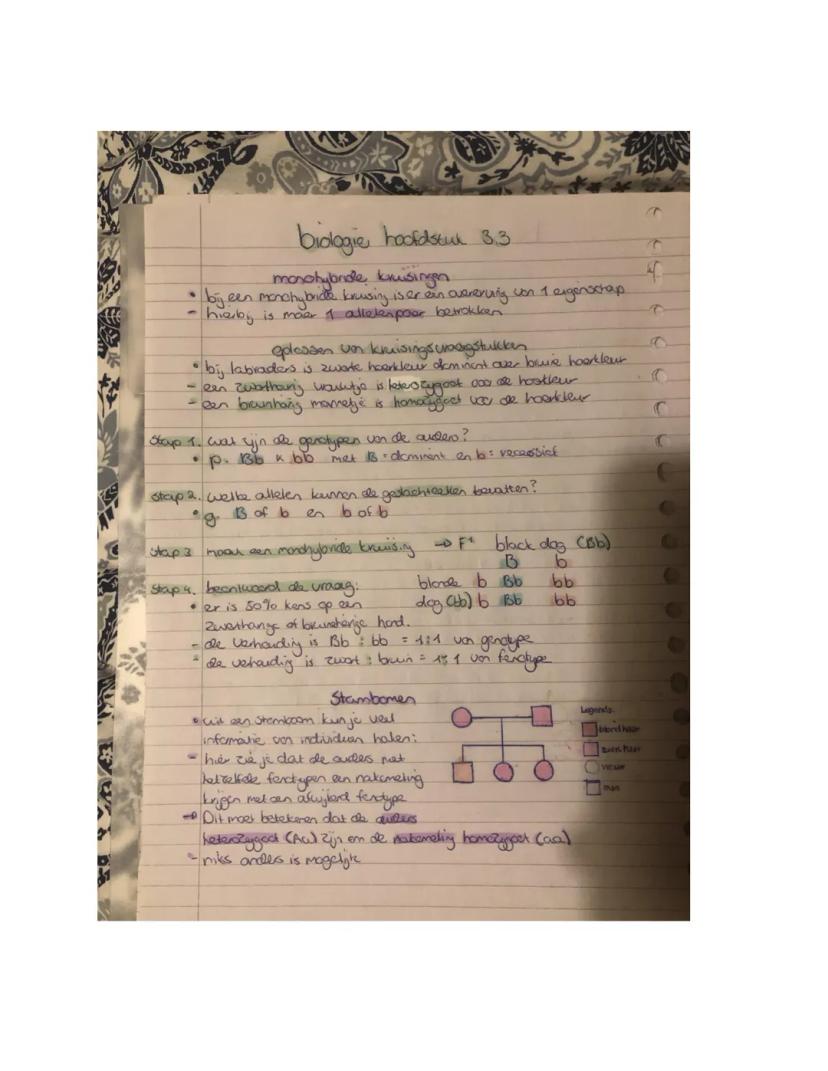 biologie hoofdstuk 3.3
monohybride kruisingen
• bij een monohybride kruising is er een overerving van 1 eigenschap
- hierbij is maar 1 allelenpaar betrokken
oplossen van kruisingsvraagstukken
• bij labradors is zwarte haarkleur dominant over bruine haarkleur
- een zwartharig vrouwtje is heterozygoot voor de haarkleur
- een bruinharig mannetje is homozygoot voor de haarkleur
Stap 1. wat zijn de genotypen van de ouders?
• P. Bb x bb met B = dominant en b = recessief
Stap 2. welke allelen kunnen de geslachtscellen bevatten?
• g. B of b en b of b
Stap 3 maak een monohybride kruising → F1 black dog (Bb)
B b
Stap 4. beantwoord de vraag: blonde b Bb bb
• er is 50% kans op een dog (bb) b Bb bb
zwartharige of bruinharige hond.
- de verhouding is Bb : bb = 1:1 van genotype
- de verhouding is zwart : bruin = 1:1 van fenotype
Stambomen
• uit een stamboom kun je veel
informatie van individuen halen:
- hier zie je dat de ouders met
hetzelfde fenotypen een nakomeling
krijgen met een afwijkend fenotype
→ Dit moet betekenen dat de ouders
heterozygoot (Aa) zijn en de nakomeling homozygoot (aa)
- niks anders is mogelijk
Legenda:
blond haar
zwart haar
vrouw
man